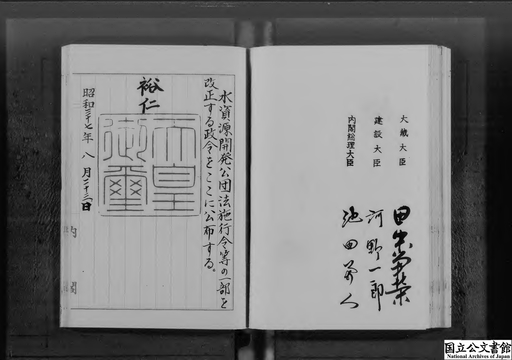 水資源開発公団法施行令等の一部を
改正する政令をここに公布する。
裕仁
天皇
御璽
昭和三十七年 八月二十三日
内閣
大蔵大臣 田中角榮
建設大臣 河野一郎
内閣総理大臣 池田勇人
国立公文書館
National Archives of Japan